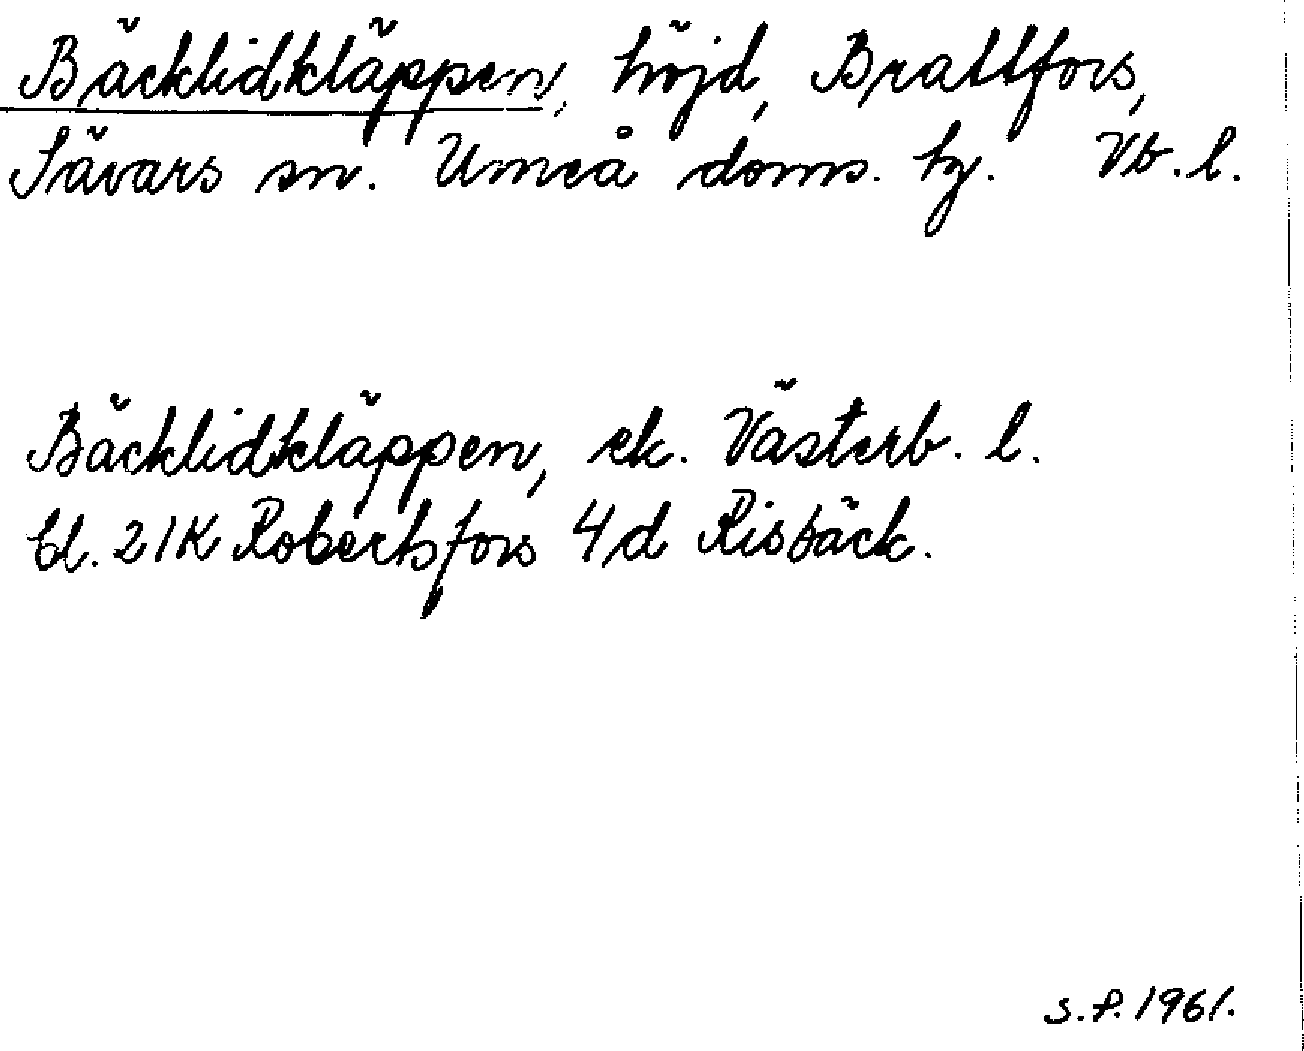 Bäcklidkläppen, höjd, Brattfors,
Sävars sn. Umeå doms. hg. Vb. l.
Bäcklidkläppen, ek. Västerb. l.
bl. 21K Robertsfors 4d Risbäck.
S.P. 1961.